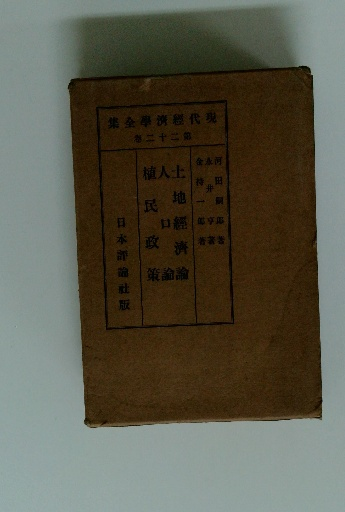 現代經濟學全集
第二十二卷
河田嗣郎著
永井亨著
金持一郎著
土地經濟論
人口論
植民政策
日本評論社版